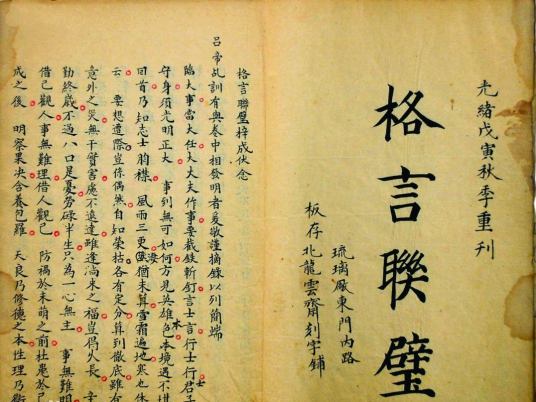 光緒戊寅秋季重刊
格言聯璧
琉璃厰東門內路
板存北龍雲齋刻字鋪
格言聯璧梓成伏念
呂帝乩訓有與卷中相發明者爰敬謹摘錄以列簡端
臨大事當大任大丈夫作事要截鉄斬釘言士言行士行君子
守身須光明正大 事到無可如何方見英雄本色境遇不堪
回首乃知志士胸襟 風雨三更猶未算雪霜遍地裳也休
云 要想遭際豈係偶然自知榮枯各有定分算到徹底雖有
意外之災無干實害處不遠達雖逢尚來之福豈為久長
勤終歲不過八口足憂勞碌半生只為一心無主 事無難明
借己觀人事無難理借人觀己 防禍於未萌之前杜患於
成之後 明察果決含養包羅 天良乃修德之本性理乃